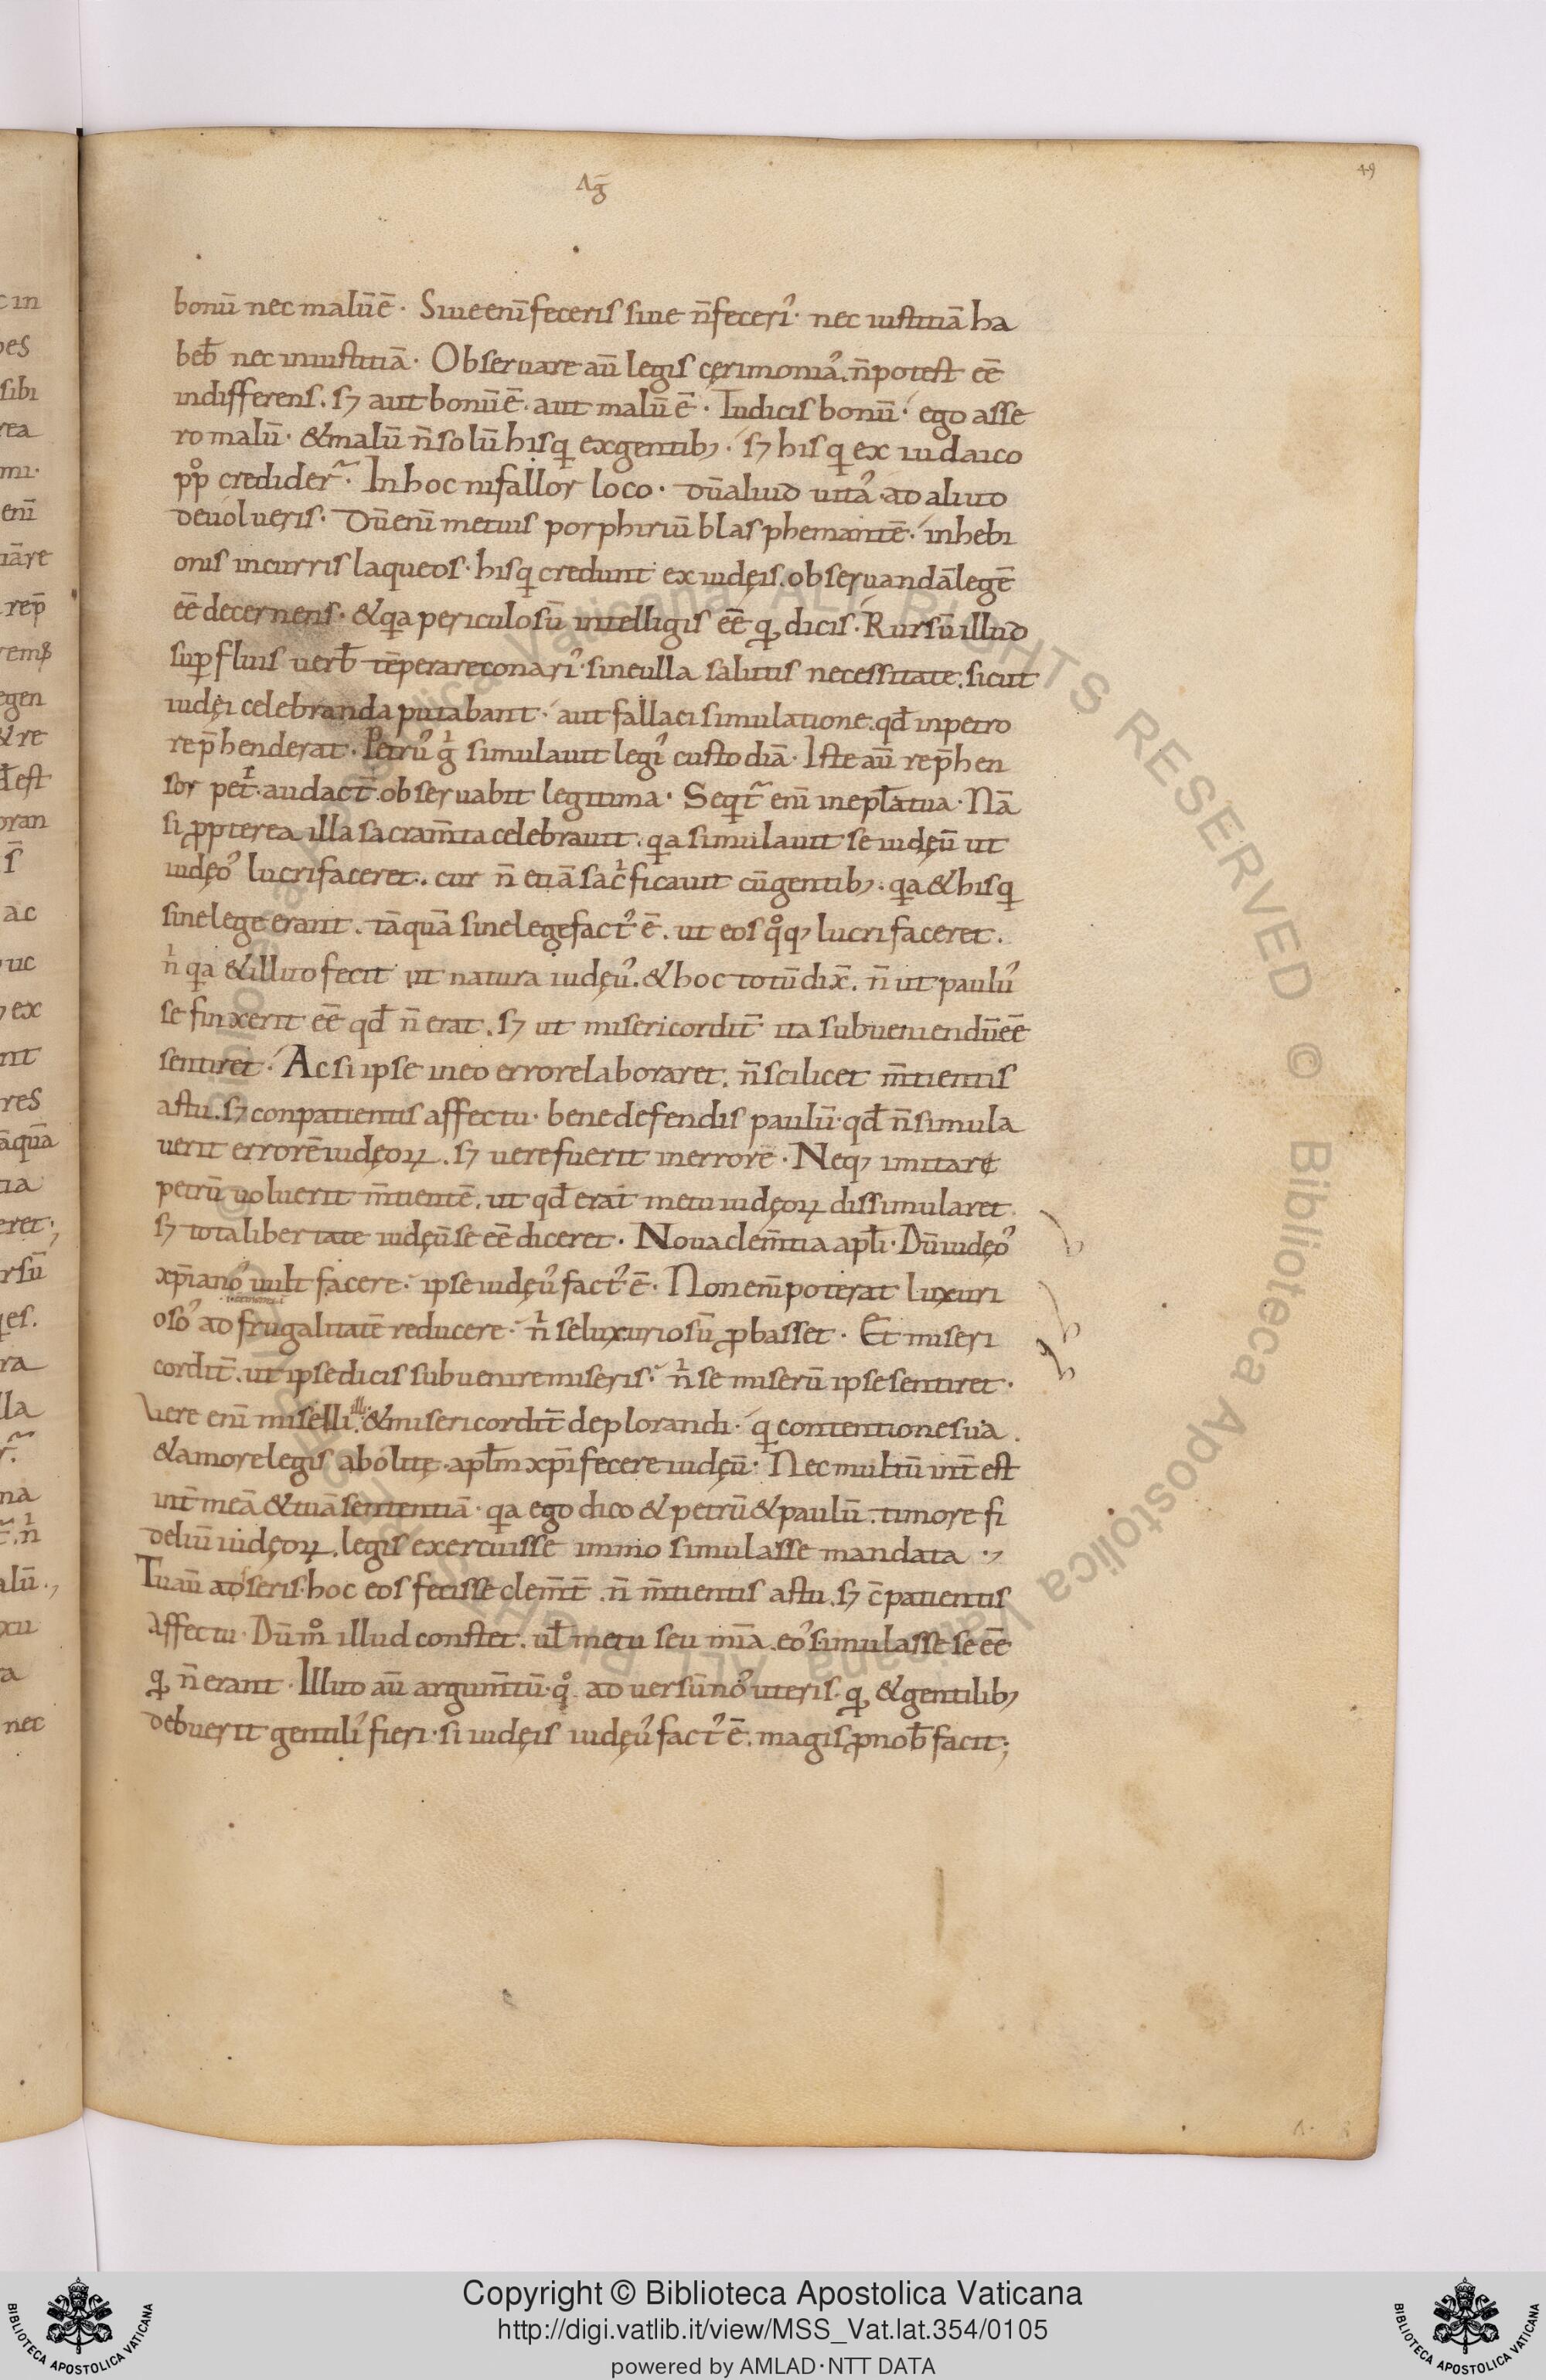 49
Aḡ
bonū nec malū ē. Siue enī feceris siue n̄ feceri᾽. nec iustitiā ha
beƀ nec iniustitiā. Obseruare aū legis cęrimonia᾽. n̄ potest eē
indifferens. sꝫ aut bonū ē. aut malū ē. Tu dicis bonū. ego asse
ro malū. & malū n̄ solū his q̣ ex gentibꝫ. sꝫ his q̣ ex iudaico
pͦp credider̃. In hoc ni fallor loco. dū aliud uita᾽. ad aliud
deuolueris. Dū enī metuis porphiriū blasphemantē. in hebi
onis incurris laqueos. his q̣ credunt ex iudęis. obseruandā legē
eē decernens. & q̣a periculosū intelligis eē q̣ dicis. Rursū illud
sup̱fluis uerƀ tēperare conari᾽. sine ulla salutis necessitate. sicut
iudęi celebranda putabant. aut fallaci simulatione. qđ in petro
rep̄henderat. Petru᾽ gͥ simulauit legi᾽ custodiā. Iste aū rep̄hen
sor pet͛. audact̄. obseruabit legitima. Seqͥt̃ enī in epl̄a tua. Nā
si ꝓpterea illa sacram̄ta celebrauit. q̣a simulauit se iudęū ut
iudęo᾽ lucrifaceret. cur n̄ etiā sac͛ficauit cū gentibꝫ. q̣a & his q̣
sine lege erant. tāquā sine lege fact᾽ ē. ut eos qͦqꝫ lucrifaceret.
nͥ q̣a & illud fecit ut natura iudęu᾽. & hoc totū dix̄. n̄ ut paulu᾽
se finxerit eē qđ n̄ erat. sꝫ ut misericordit̄ ita subueniendū eē
sentiret. Ac si ipse in eo errore laboraret. n̄ scilicet m̄tientis
astu. sꝫ conpatientis affectu. bene defendis paulū. qđ n̄ simula
uerit errorē iudęoꝝ. sꝫ uere fuerit in errore. Neqꝫ imitare
petrū uoluerit m̄tientē. ut qđ erat metu iudęoꝝ dissimularet.
sꝫ tota libertate iudęū se eē diceret. Noua clem̄tia apl̄i. Dū iudęo᾽
xp̄iano᾽ uult facere. ipse iudęu᾽ fact᾽ ē. Non enī poterat luxuri
oso᾽ ad frugalitatē reducere. nͥ se luxuriosū ꝓbasset. Et miseri
cordit̄. ut ipse dicis subuenire miseris. nͥ se miserū ipse sentiret.
Vere enī miselli illi. & misericordit̄ deplorandi. q̣ contentione sua.
& amore legis abolitę. apl̄m xp̄i fecere iudęū. Nec multū int̄ est
int̄ meā & tuā sententiā. q̣a ego dico & petrū & paulū. timore fi
deliū iudęoꝝ. legis exercuisse immo simulasse mandata.
Tu aū adseris. hoc eos fecisse clem̄t̄. n̄ m̄tientis astu. sꝫ c̄patientis
affectu. Dū mͦ illud constet. ul̄ metu seu mīa. eo᾽ simulasse se eē
q̣ n̄ erant. Illud aū argum̄tū. qͦ aduersū no᾽ uteris. q̣ & gentilibꝫ
debuerit gentili᾽ fieri. si iudęis iudęu᾽ fact᾽ ē. magis ꝓ noƀ facit;
Copyright © Biblioteca Apostolica Vaticana
http://digi.vatlib.it/view/MSS_Vat.lat.354/0105
powered by AMLAD·NTT DATA